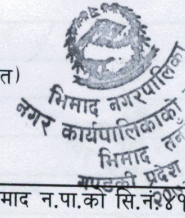 त)
भिमाद नगरपालिका
नगर कार्यपालिकाको
भिमाद
गण्डकी प्रदेश
माद न.पा.को सि.नं.